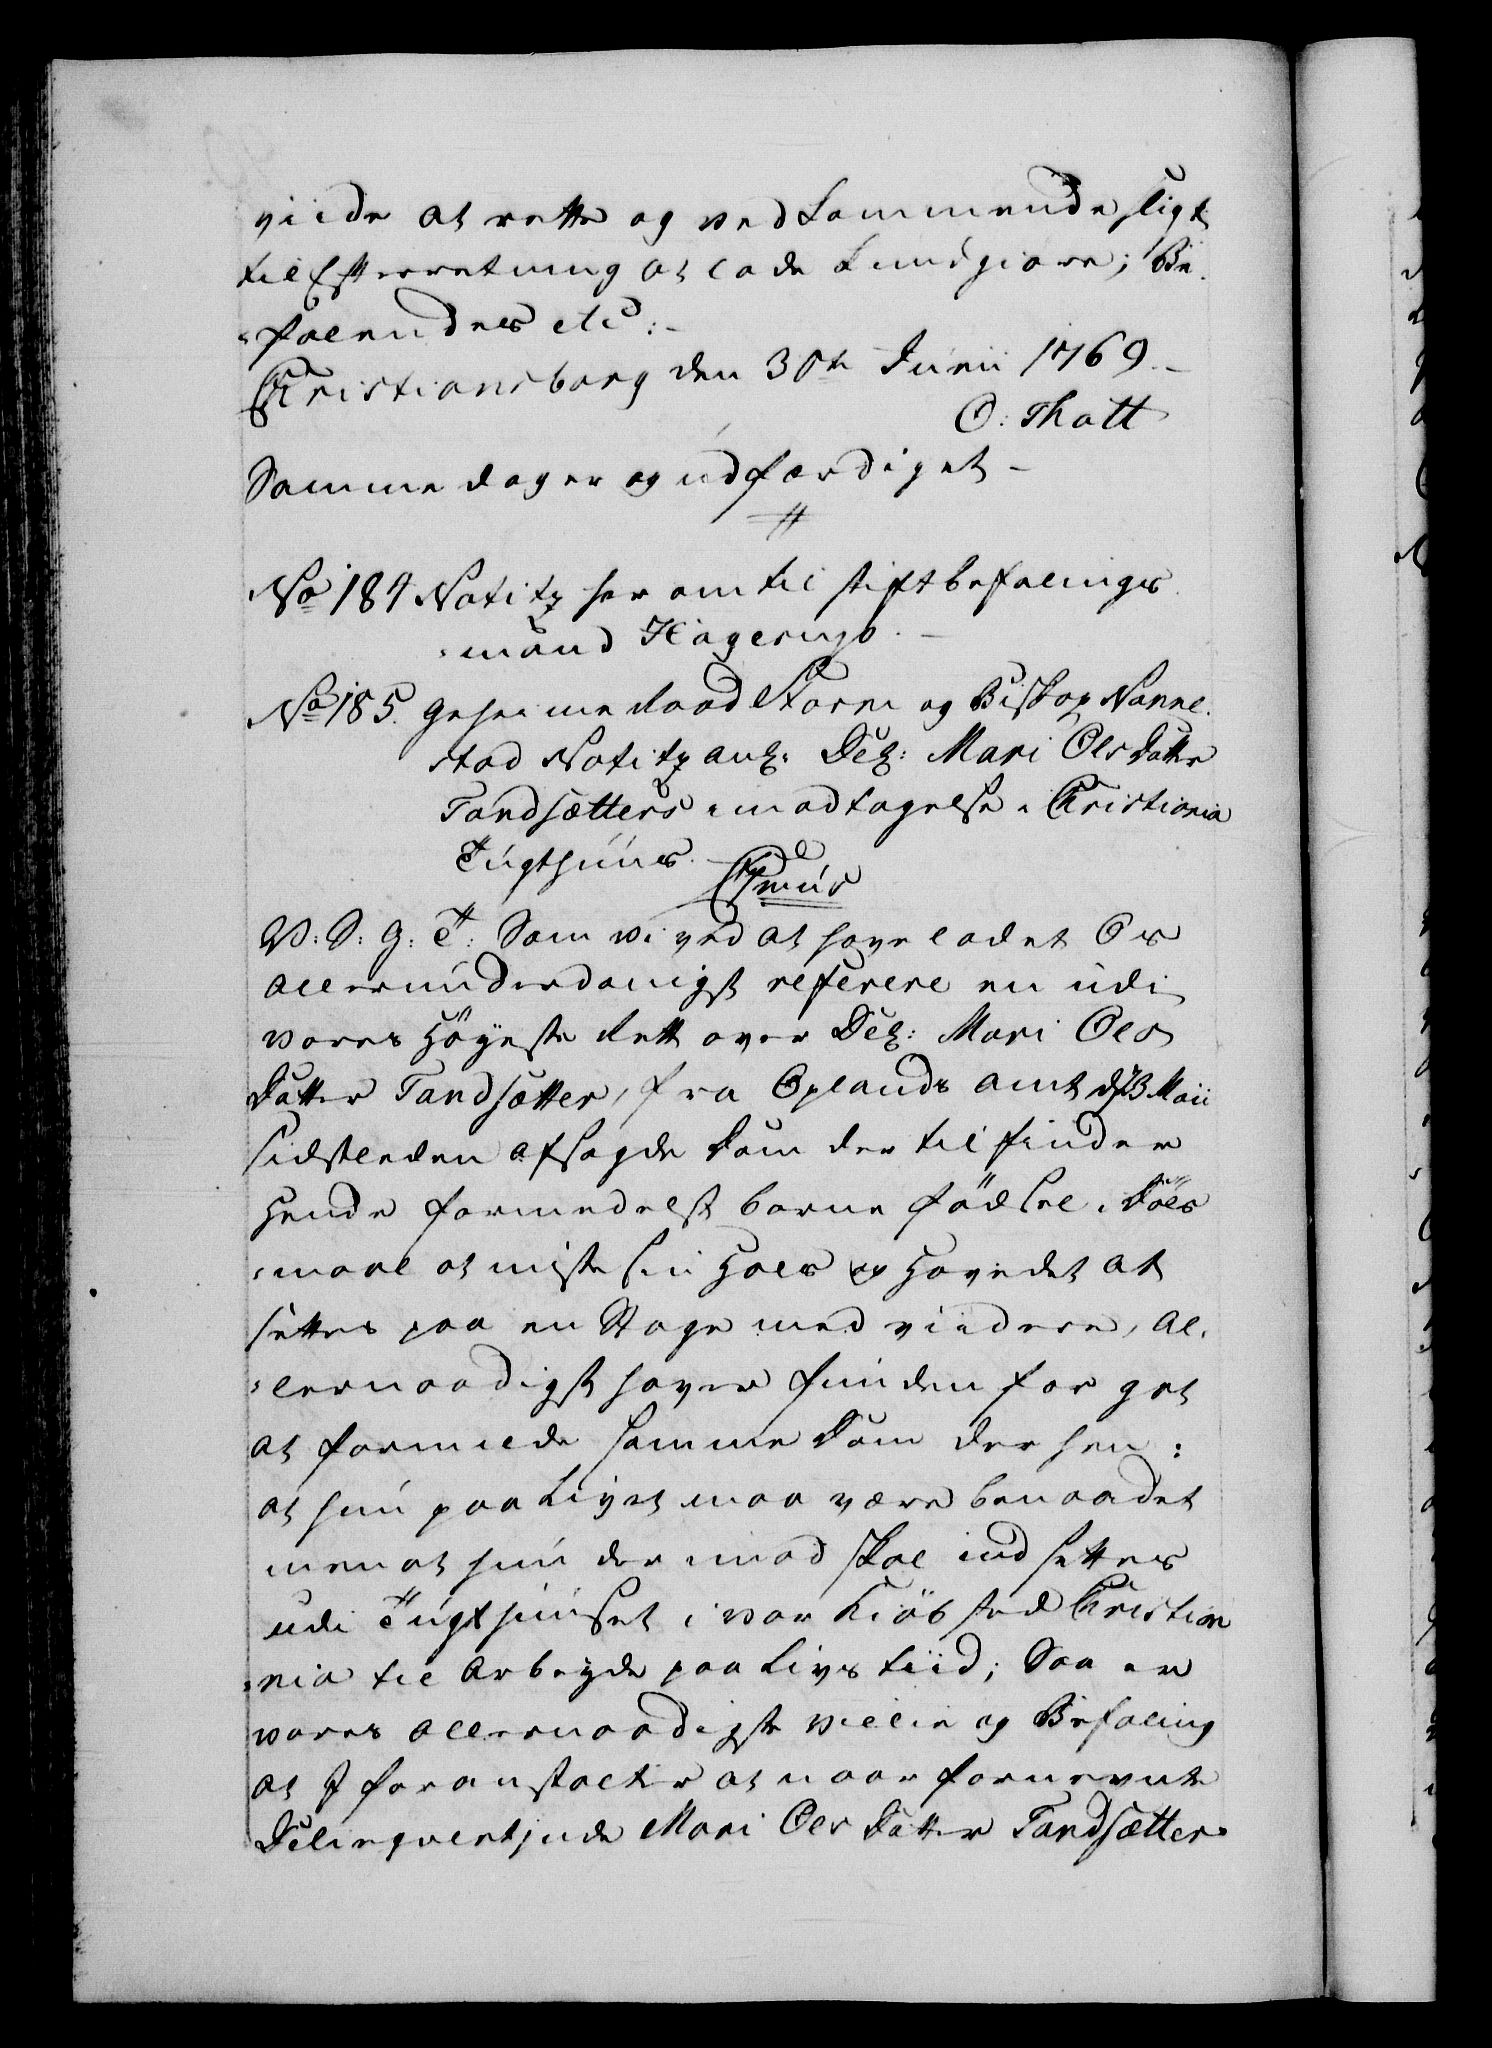 viide at rette og vedkommende sligt
til Efterretning at lade kundgiøre; Be-
-falendes etc:
Christiansborg den 30te Junii 1769.-
O: Thott
Samme dag er og udfærdiget -
No 184 Notitz her om til Stiftbefalings
-mand Hagerup. -
No 185. Geheime Raad Storm og Biskop Nannestad
Notitz ang: Del: Mari Olsdatter
Tandsætters imodtagelse i Christiania
Tugthuus. -
Cr: 7mus
V: S: G: T: Som vi ved at have ladet Os
allerunderdanigst referere en udi
vores Høyeste Rett over Del: Mari Ols
Datter Tandsætter, fra Oplands Amt d: 13 Maii
sidstleden afsagde Dom der tilfinder
hende formedelst barne fødsel i Døls
-maal at miste sin Hals og Hovedet at
settes paa en Stage med viidere, al-
-lernaadigst haver funden for got
at formilde samme Dom der hen:
at hun paa Livet maa være benaadet
men at hun der imod skal indsettes
udi Tugthuuset i vor Kiøbsted Christia
-nia til Arbeyde paa Livs tiid; Saa er
vores allernaadigste Villie og Befaling
at I foranstalter at naar fornevnte
Delinqventjnde Mari Ols Datter Tandsætter